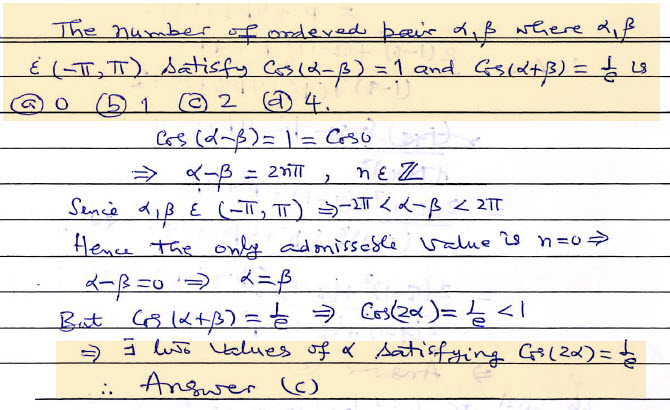 The number of ordered pair α, β where α, β
ε (-π, π). Satisfy Cos(α-β) = 1 and Cos(α+β) = 1/e is
(a) 0 (b) 1 (c) 2 (d) 4.
Cos (α-β) = 1 = Cos0
⇒ α-β = 2nπ , n ε ℤ
Sence α, β ε (-π, π) ⇒ -2π < α-β < 2π
Hence the only admisseble value is n=0 ⇒
α-β=0 ⇒ α=β
But Cos (α+β) = 1/e ⇒ Cos(2α) = 1/e < 1
⇒ ∃ two values of α satisfying Cos(2α) = 1/e
∴ Answer (c)